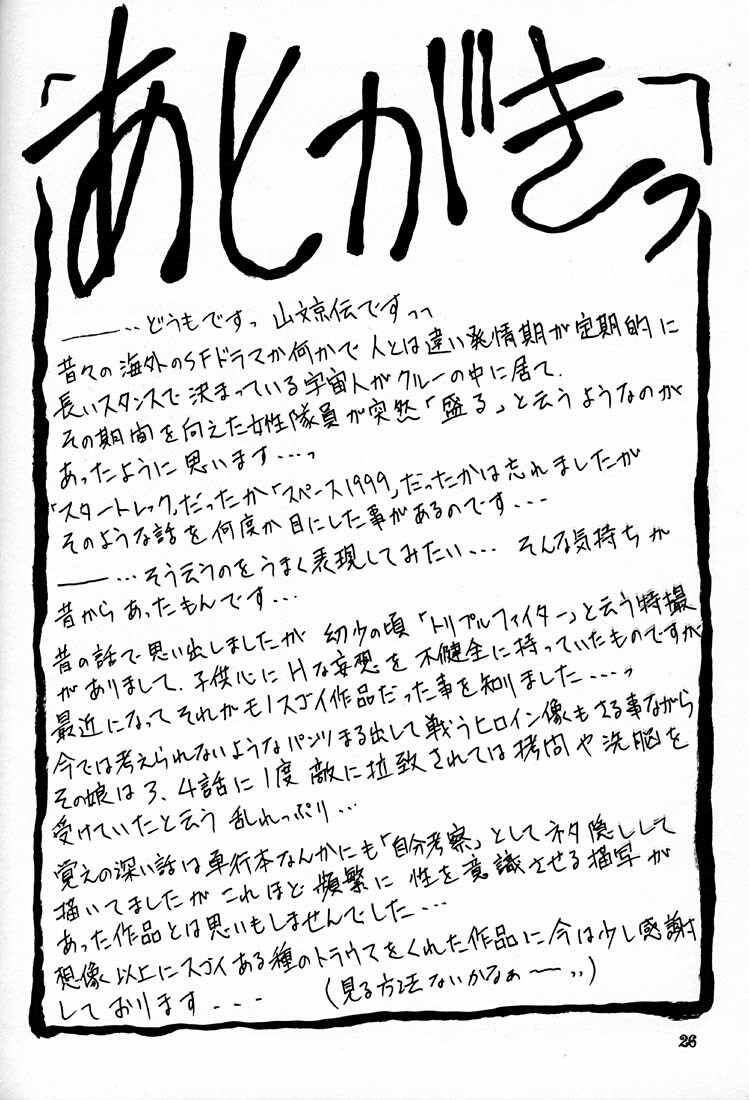 あとがきっ
――‥どうもですっ 山文京伝ですっっ
昔々の海外のSFドラマか何かで人とは違い発情期が定期的に
長いスタンスで決まっている宇宙人がクルーの中に居て.
その期間を向えた女性隊員が突然「盛る」と云うようなのが
あったように思います…っ
「スタートレック」だったか「スペース1999」だったかは忘れましたが
そのような話を何度か目にした事があるのです…
――…そう云うのをうまく表現してみたい… そんな気持ちが
昔からあったもんです…
昔の話で思い出しましたが 幼少の頃「トリプルファイター」と云う特撮
がありまして.子供心にHな妄想を不健全に持っていたものですが
最近になってそれがモノスゴイ作品だった事を知りました…っ
今では考えられないようなパンツまる出しで戦うヒロイン像もさる事ながら
その娘は3、4話に1度 敵に拉致されては拷問や洗脳を
受けていたと云う 乱れっぷり…
覚えの深い話は単行本なんかにも「自分考察」としてネタ隠しして
描いてましたが これほど頻繁に 性を意識させる描写が
あった作品とは思いもしませんでした…
想像以上にスゴイある種のトラウマをくれた作品に今は少し感謝
しております… (見る方法ないかなぁー‥)
26